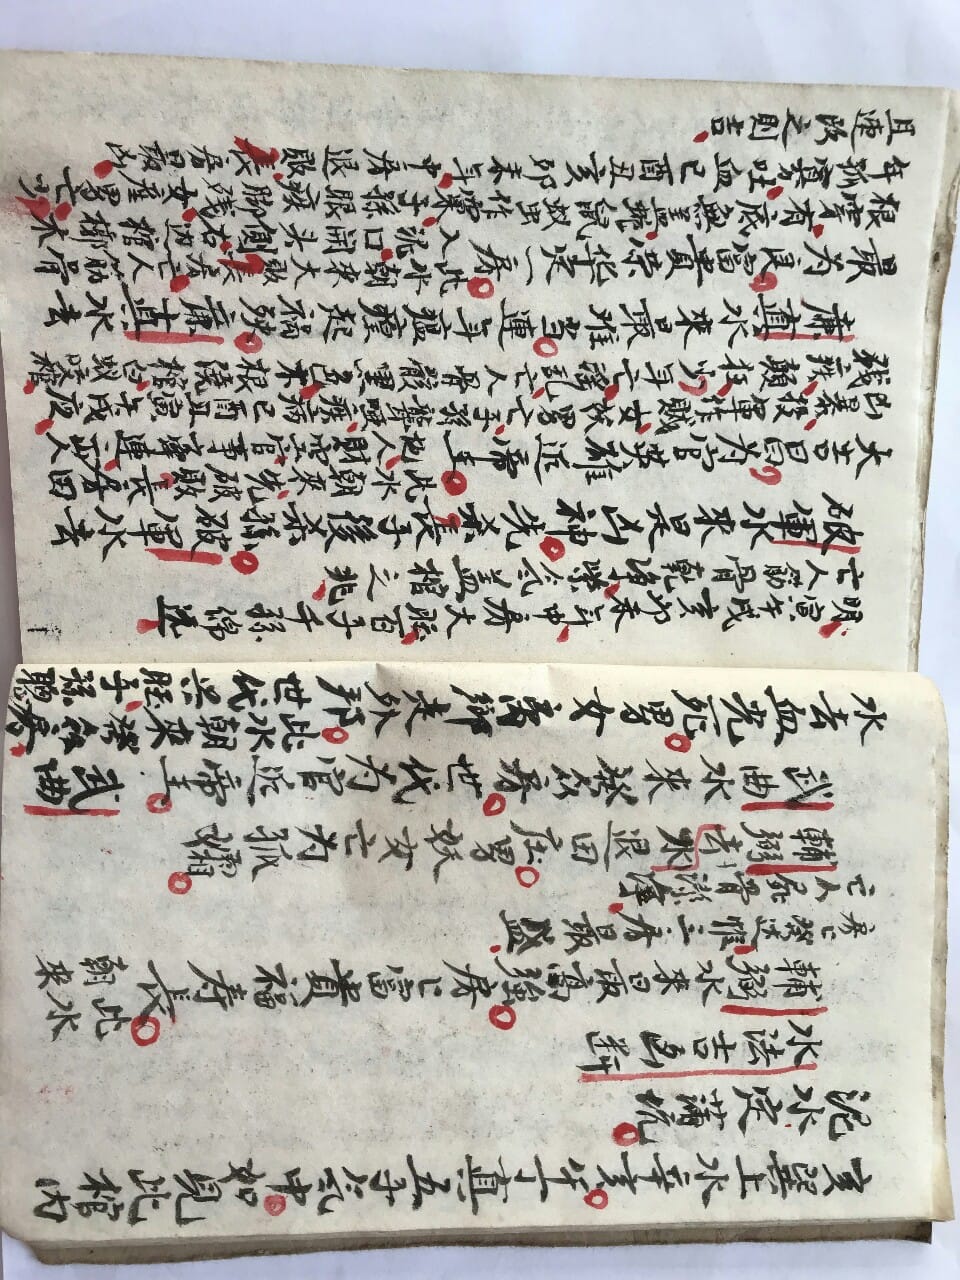 亥巽上水辛亥午丁真五子气中如見此棺内
泥水定蒲坑
水法吉凶断
輔弼水来最高強房匕富貴福寿長此水
朝来
房匕發达惟三房最盛
亡人屍骨潔净
輔弼去水退田庄男妖女亡为孤孀
武曲水来發众房世代为官近帝王武曲
水去血光死男女离鄉走外邦此水朝来發众房
世代兴旺子孫聰
明寅午戌亥卯未年中房大旺百子千孫绵远
亡人筋骨乾净紫气盖棺之兆
破軍水來是凶神先杀長子後杀孫破軍水去
大吉昌为官英雄近帝王此水朝来先破敗長房田
地人財空官事牽連出人
凶暴投軍作贼女妖男亡子孫聾哑疾病巳酉丑寅午戌应
残疾顛狂少年亡淫乱亡人骨骸黑色木根绕棺白蚁咬棺
廉真水來最难当連年瘟瘟起祸殃廉真水去
最为良富貴荣华定一房此水朝来大敗長房亡人筋骨
入泥口開头侧右边棺槨木
根穿有底無盖蛇鼠蚁虫作窠子孫眼疾脚残女産男亡少
年孤寡吐血巳酉丑亥卯未年中房退敗長房最凶
且速改之則吉